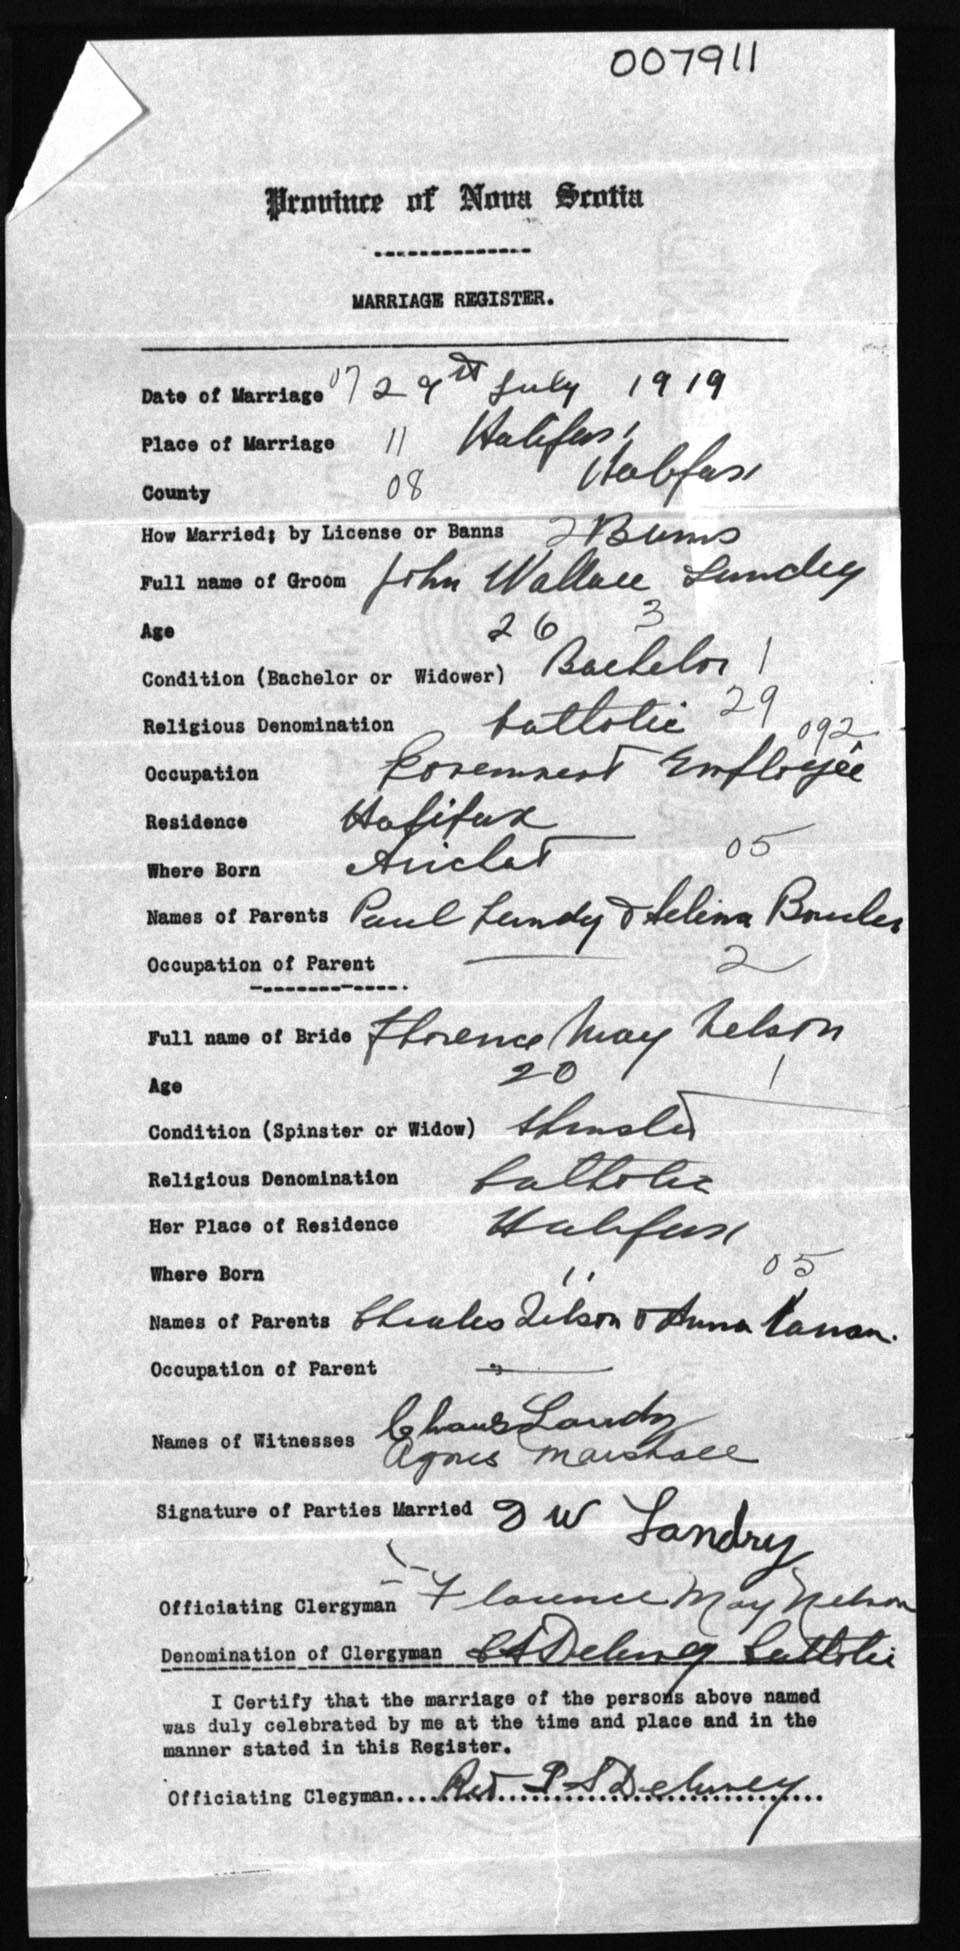 007911
Province of Nova Scotia
MARRIAGE REGISTER.
Date of Marriage 07 29st July 1919
Place of Marriage 11 Halifax
County 08 Halifax
How Married; by License or Banns 2 Banns
Full name of Groom John Wallace Landry
Age 26 3
Condition (Bachelor or Widower) Bachelor 1
Religious Denomination Catholic 29
Occupation Government Employee 092
Residence Halifax
Where Born Arichat 05
Names of Parents Paul Landry & Selina
Occupation of Parent — 2
Full name of Bride Florence May Nelson
Age 20 1
Condition (Spinster or Widow) Spinster
Religious Denomination Catholic
Her Place of Residence Halifax
Where Born " 05
Names of Parents Charles Nelson & Anna
Occupation of Parent —
Names of Witnesses Landry
Agnes Marshall
Signature of Parties Married J W Landry
Officiating Clergyman Florence May Nelson
Denomination of Clergyman Catholic
I Certify that the marriage of the persons above named
was duly celebrated by me at the time and place and in the
manner stated in this Register.
Officiating Clegyman....Rev